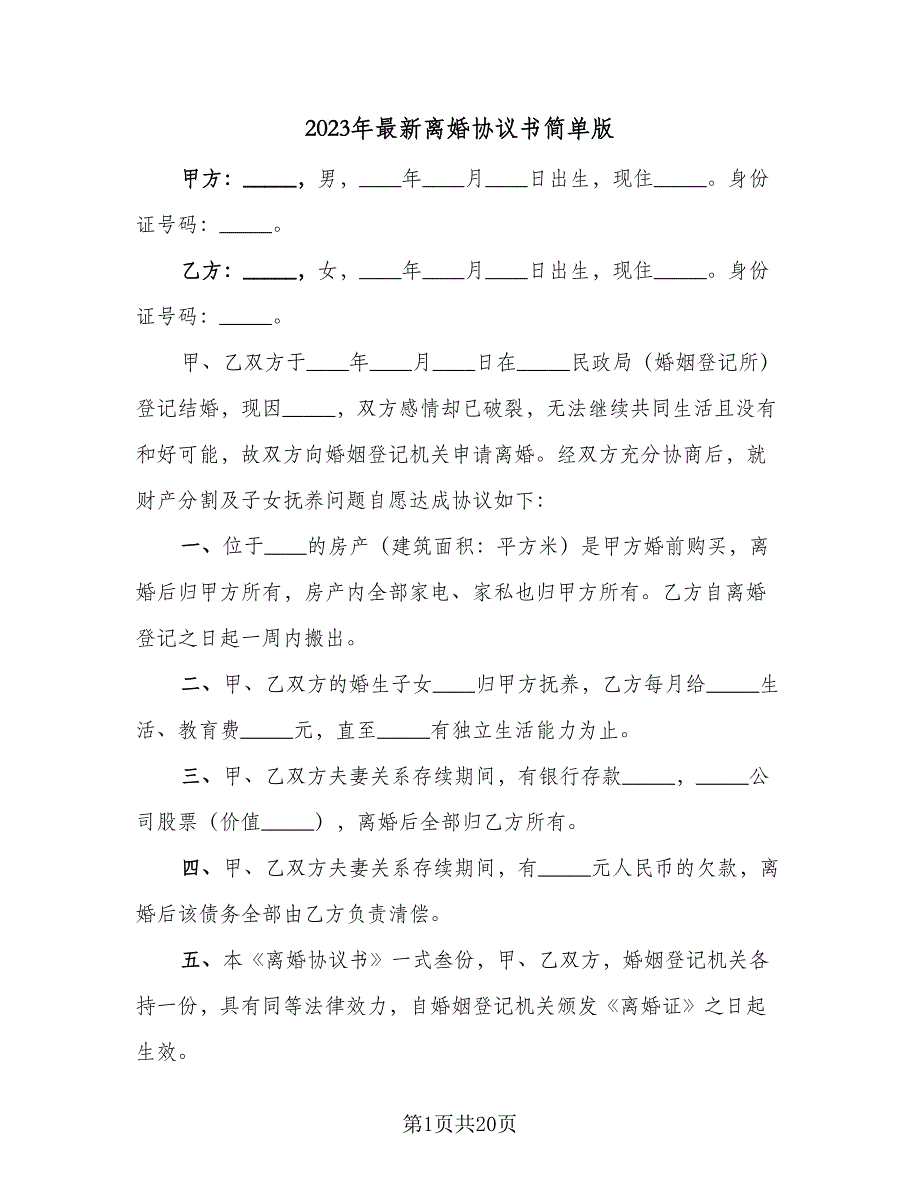 2023年最新离婚协议书简单版
甲方：_____，男，____年____月____日出生，现住_____。身份
证号码：_____。
乙方：_____，女，____年____月____日出生，现住_____。身份
证号码：_____。
甲、乙双方于____年____月____日在_____民政局（婚姻登记所）
登记结婚，现因_____，双方感情却已破裂，无法继续共同生活且没有
和好可能，故双方向婚姻登记机关申请离婚。经双方充分协商后，就
财产分割及子女抚养问题自愿达成协议如下：
一、位于____的房产（建筑面积：平方米）是甲方婚前购买，离
婚后归甲方所有，房产内全部家电、家私也归甲方所有。乙方自离婚
登记之日起一周内搬出。
二、甲、乙双方的婚生子女____归甲方抚养，乙方每月给_____生
活、教育费_____元，直至_____有独立生活能力为止。
三、甲、乙双方夫妻关系存续期间，有银行存款_____，_____公
司股票（价值_____），离婚后全部归乙方所有。
四、甲、乙双方夫妻关系存续期间，有_____元人民币的欠款，离
婚后该债务全部由乙方负责清偿。
五、本《离婚协议书》一式叁份，甲、乙双方，婚姻登记机关各
持一份，具有同等法律效力，自婚姻登记机关颁发《离婚证》之日起
生效。
第1页共20页